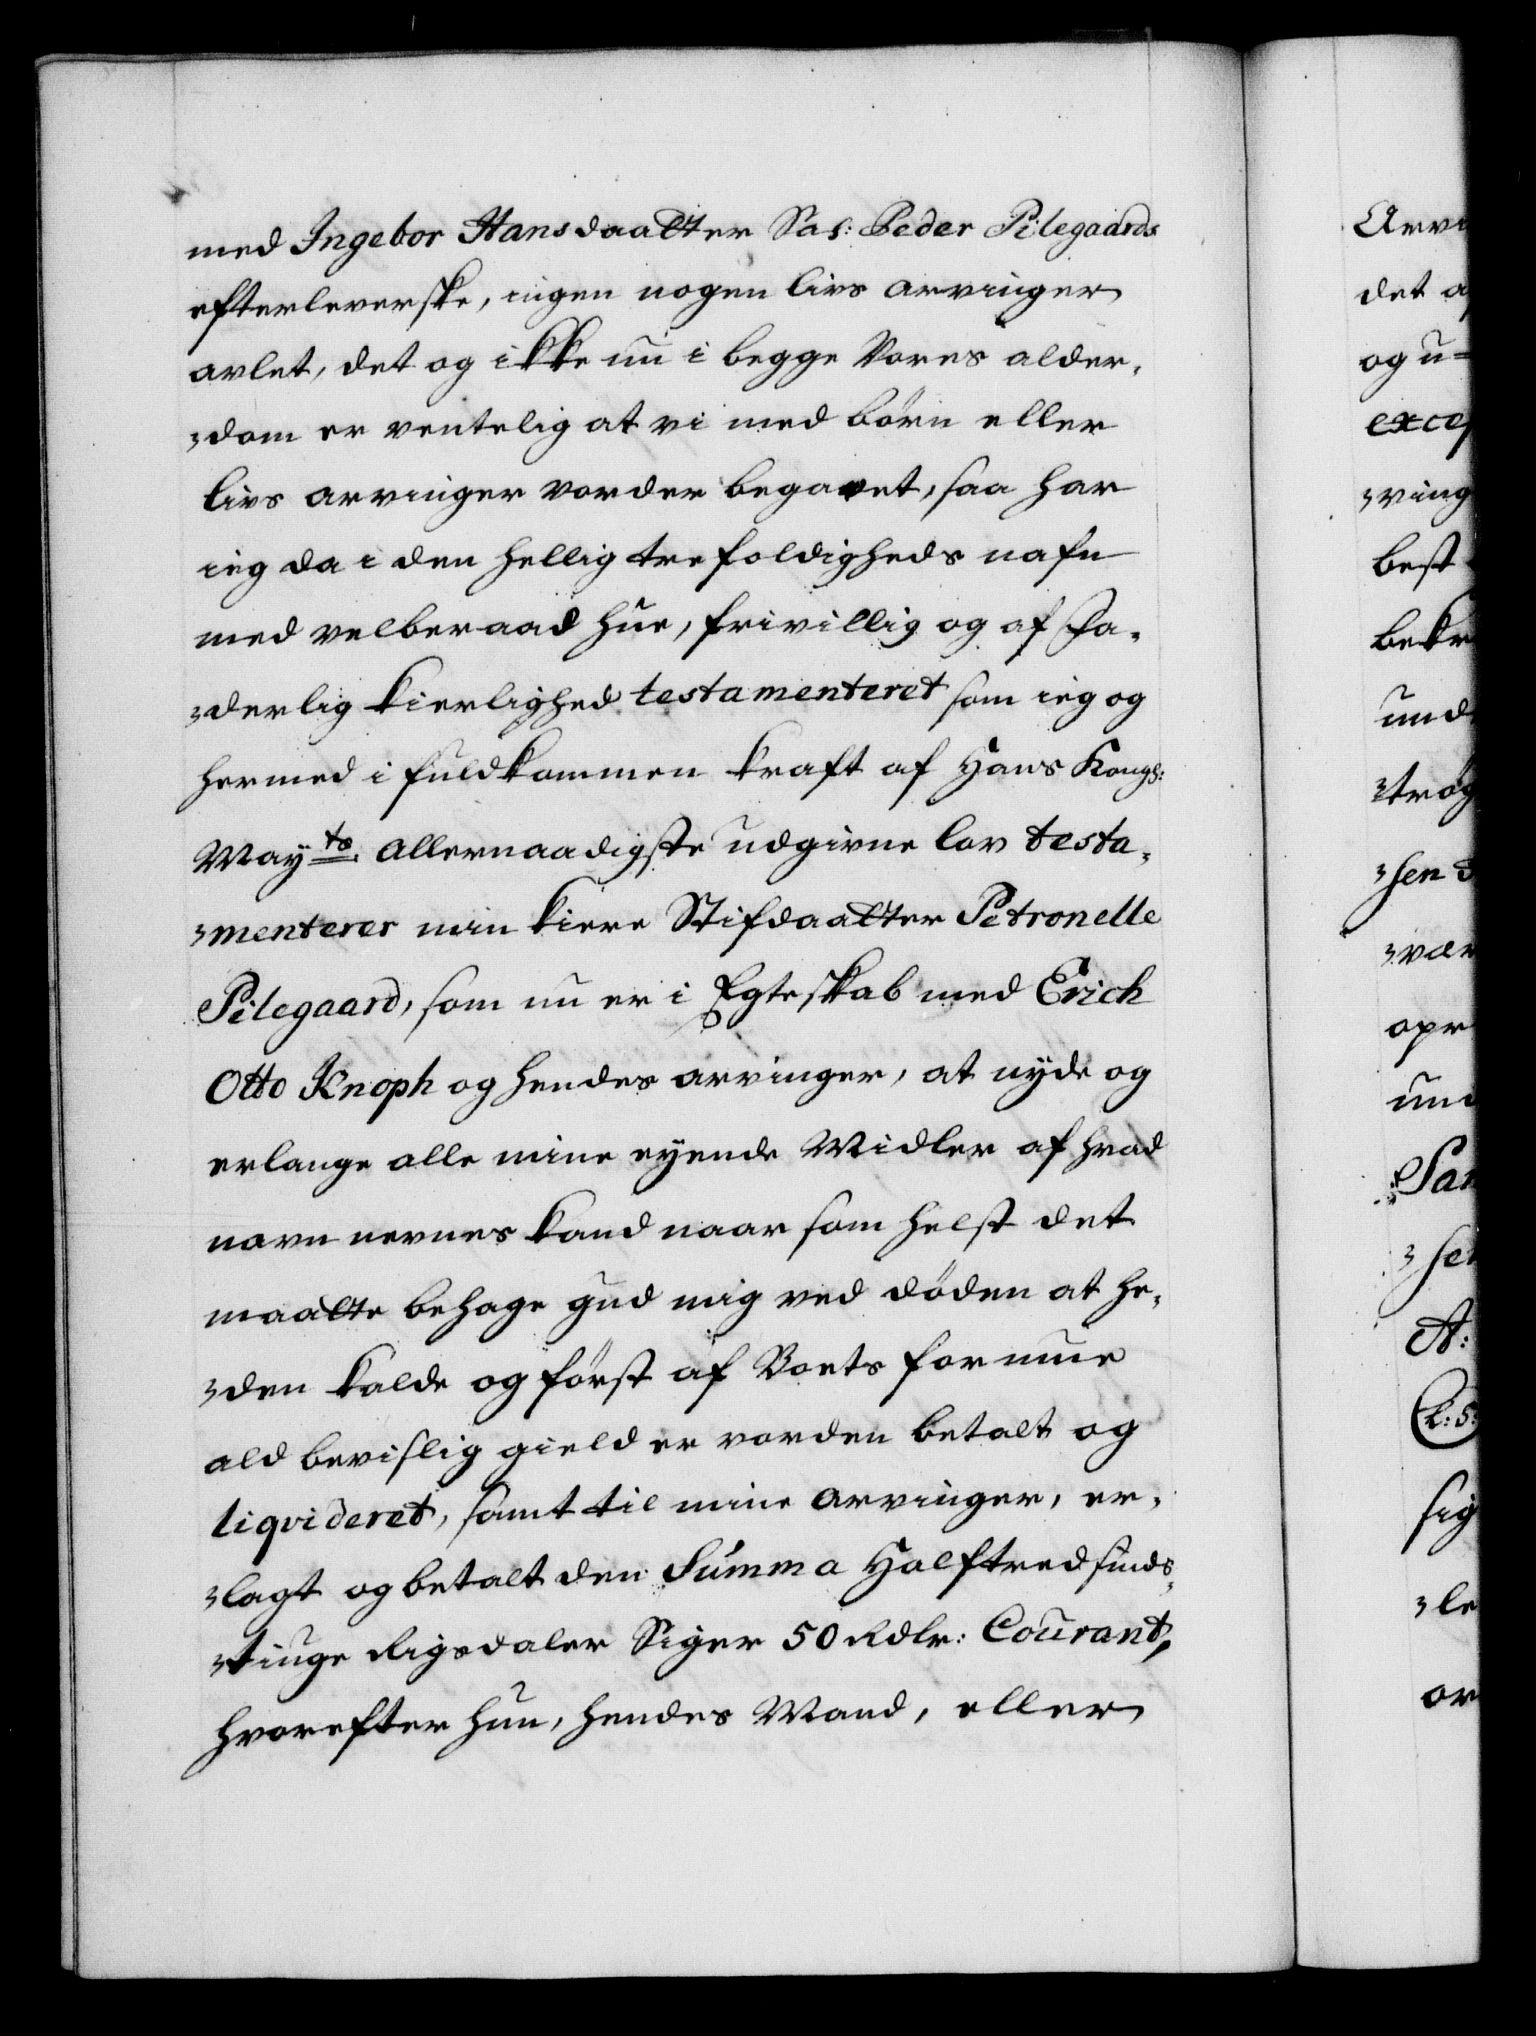 med Ingebor Hansdaatter Sal: Peder Pilegaards
efterleverske, ingen nogen livs arvinger
avlet, det og ikke nu i begge Vores alder-
dom er ventelig at vi med børn eller
livs arvinger vorder begavet, saa har
ieg da i den hellig trefoldigheds nafn
med velberaad hue, frivillig og af Fa-
derlig kierlighed testamenteret som ieg og
hermed i fuldkommen kraft af Hans Kongl:
May.ts allernaadigste udgivne lov testa-
menterer min kiere Stifdaatter Petronelle
Pilegaard, som nu er i Egteskab med Erich
Otto Knoph og hendes arvinger, at nyde og
erlange alle mine eyende Midler af hvad
navn nevnes kand naar som helst det
maatte behage gud mig ved døden at he-
den kalde og først af Boets formue
ald bevislig gield er vorden betalt og
liqvideret, samt til mine arvinger, er-
lagt og betalt den Summa Halftredsinds-
tiuge Rigsdaler Siger 50 Rdlr: Courant,
hvorefter hun, hendes Mand, eller
Arvi
det a
og u=
excep
ving
best
bekr
unde
trøg
sen
vær
opr
und
San
sen
A:
(L: S:
sig
le
or